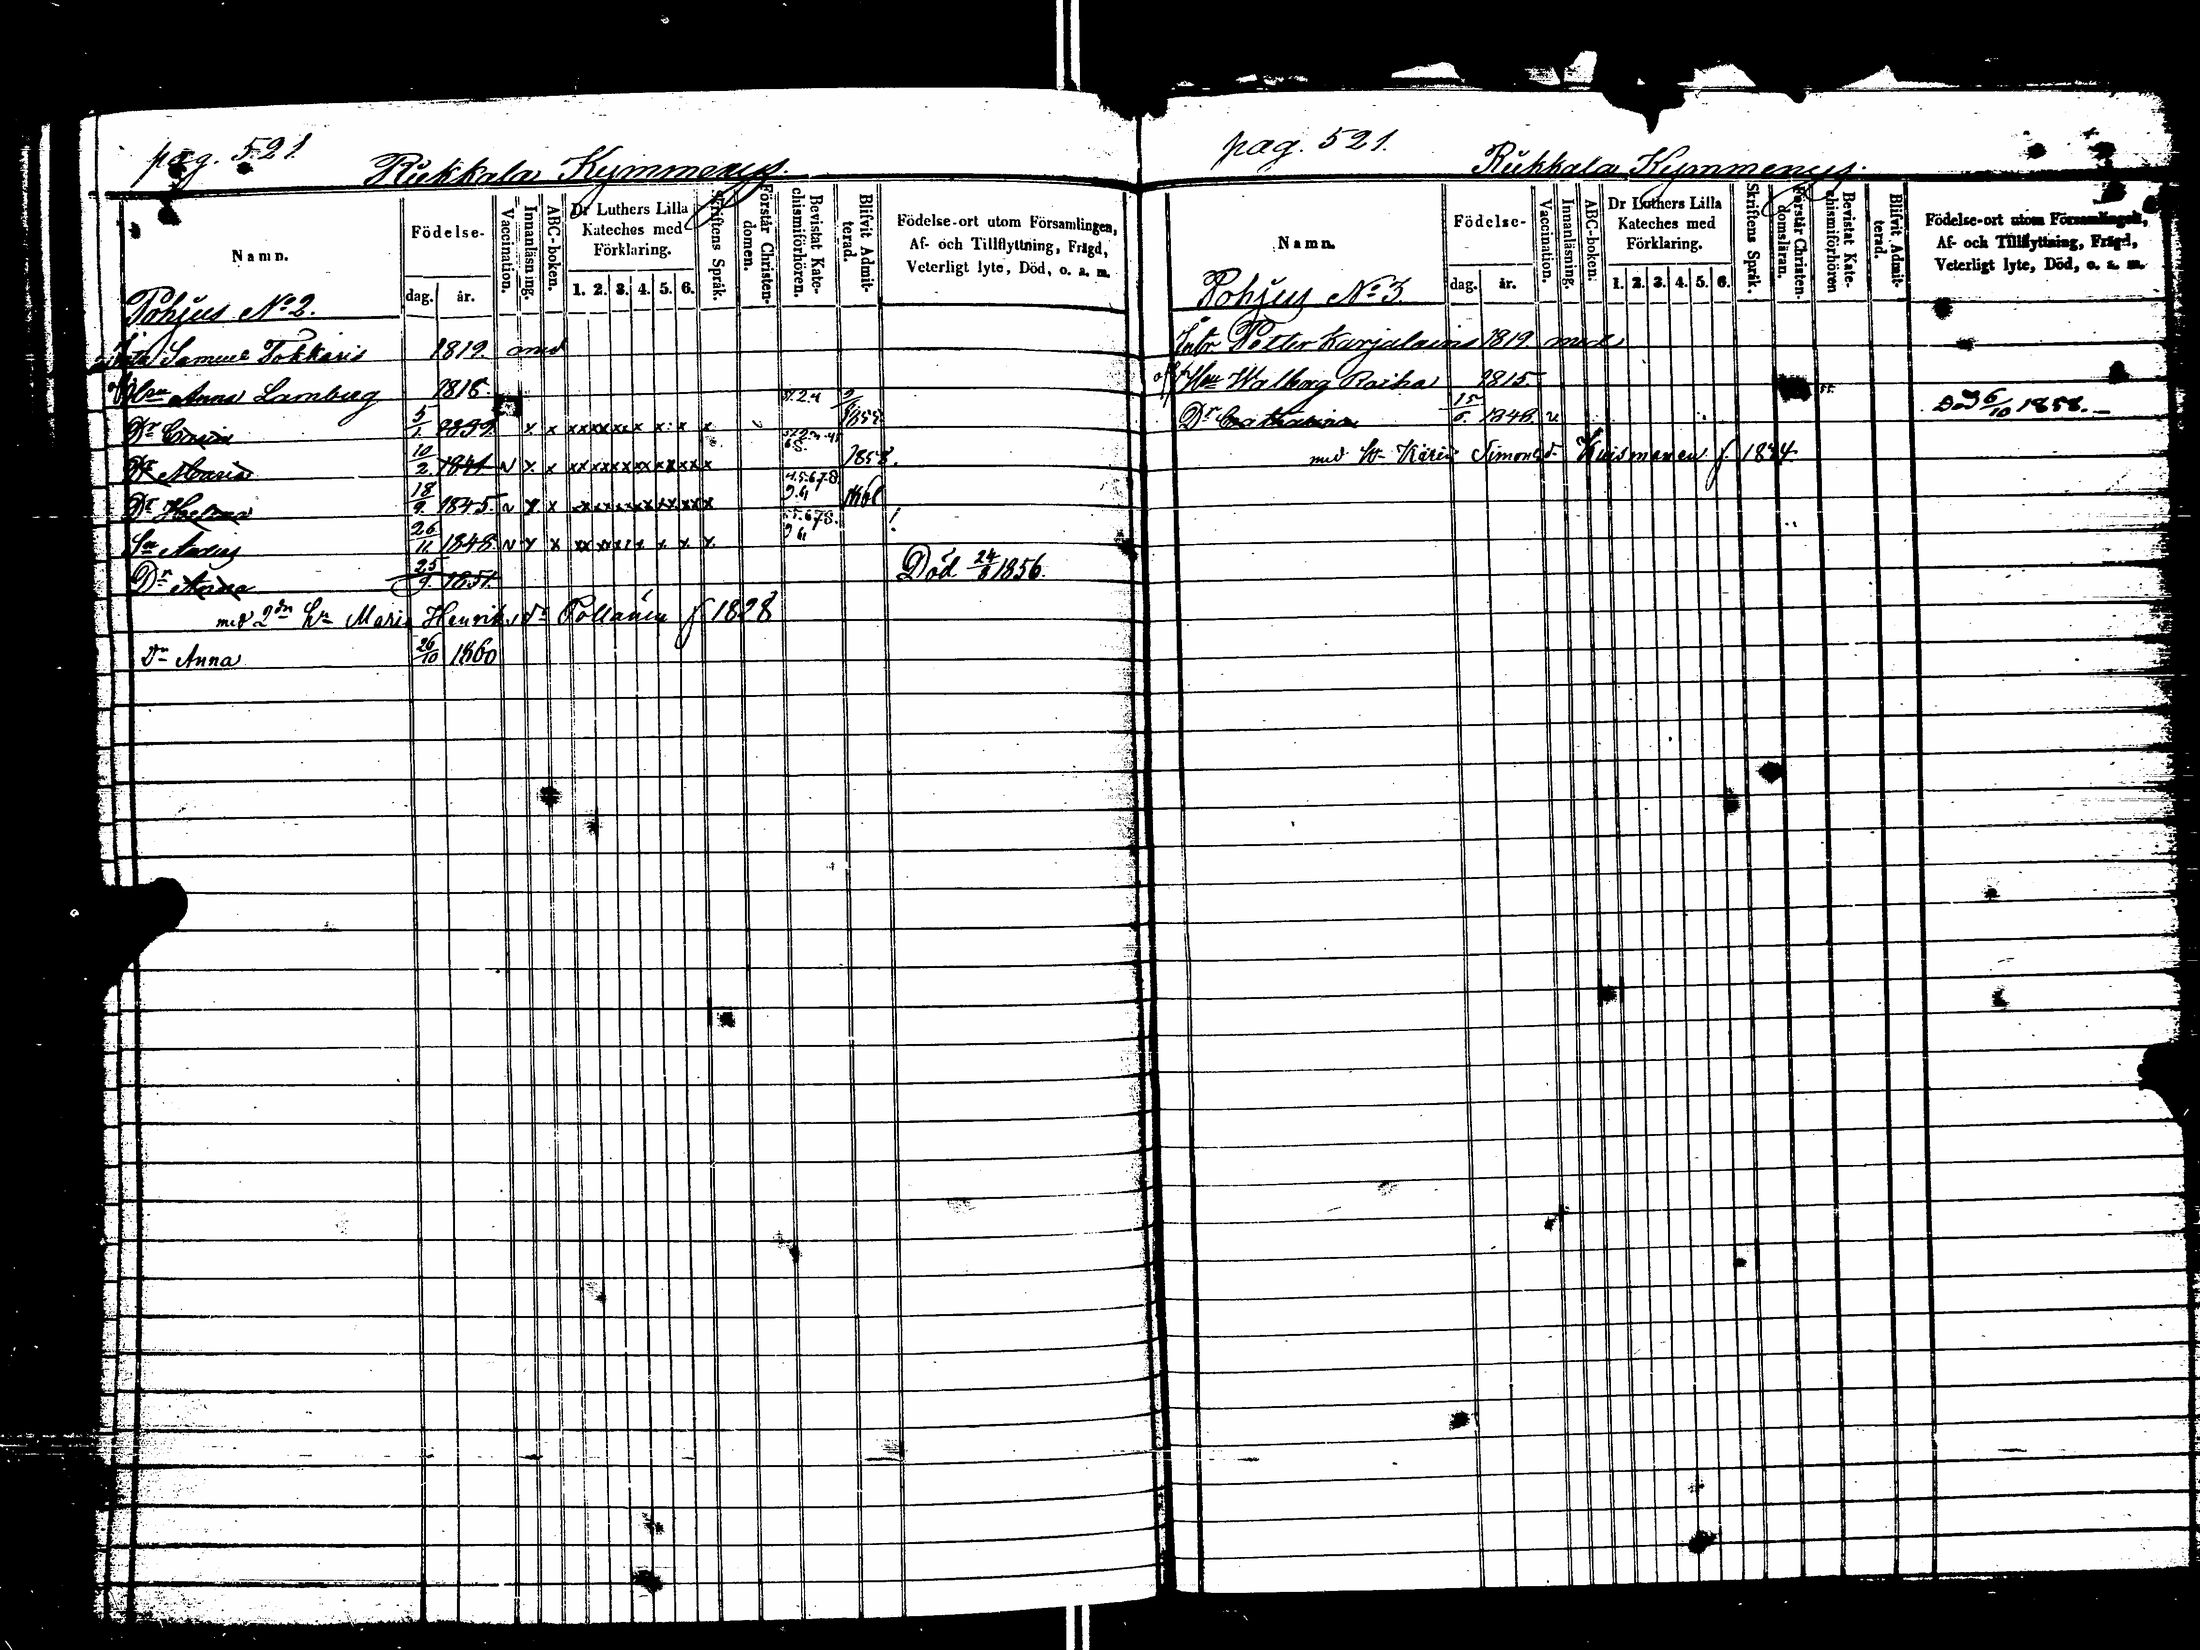 pag. 521.
Rukkala Kymmenys.
Namn.
Födelse-
dag. år.
Vaccination.
Innanläsning.
ABC-boken.
Dr Luthers Lilla
Kateches med
Förklaring.
1. 2. 3. 4. 5. 6.
Skriftens Språk.
Förstår Christen-
domen.
Bevistat Kate-
chismiförhören.
Blifvit Admit-
terad.
Födelse-ort utom Församlingen,
Af- och Tillflyttning, Frägd,
Veterligt lyte, Död, o. a. m.
Pohjus No 2.
Samuel Tokkaris 1819. med
Anna Lamberg 1818.
Dr 5/1. 1839. x x x x x x x x x x 1855
Dr Maria 10/2. 1841. v x x x x x x x x x x x x x 1858.
Dr Helena 18/9. 1845. v x x x x x x x x x x x x x x
Sn Anders 26/11. 1848. v x x x x x x x x x x
Dr Anna 25/9. 1851. Död 24/8 1856.
med 2dn Hu Maria Henriksdr Pollänen f 1828
Dr Anna 26/10 1860
pag. 521.
Rukkala Kymmenys.
Namn.
Födelse-
dag. år.
Vaccination.
Innanläsning.
ABC-boken.
Dr Luthers Lilla
Kateches med
Förklaring.
1. 2. 3. 4. 5. 6.
Skriftens Språk.
Förstår Christen-
domsläran.
Bevistat Kate-
chismiförhören
Blifvit Admit-
terad.
Födelse-ort utom Församlingen,
Af- och Tillflyttning, Frägd,
Veterligt lyte, Död, o. a. m.
Pohjus No 3.
Inbr Petter Karjalainen 1819. med
Hu Walborg Raiha 1815. Död 6/10 1858.
Dr Catharina 15/5. 1848. v
med Hu Karin Simonsd. Kuismanen f. 1834